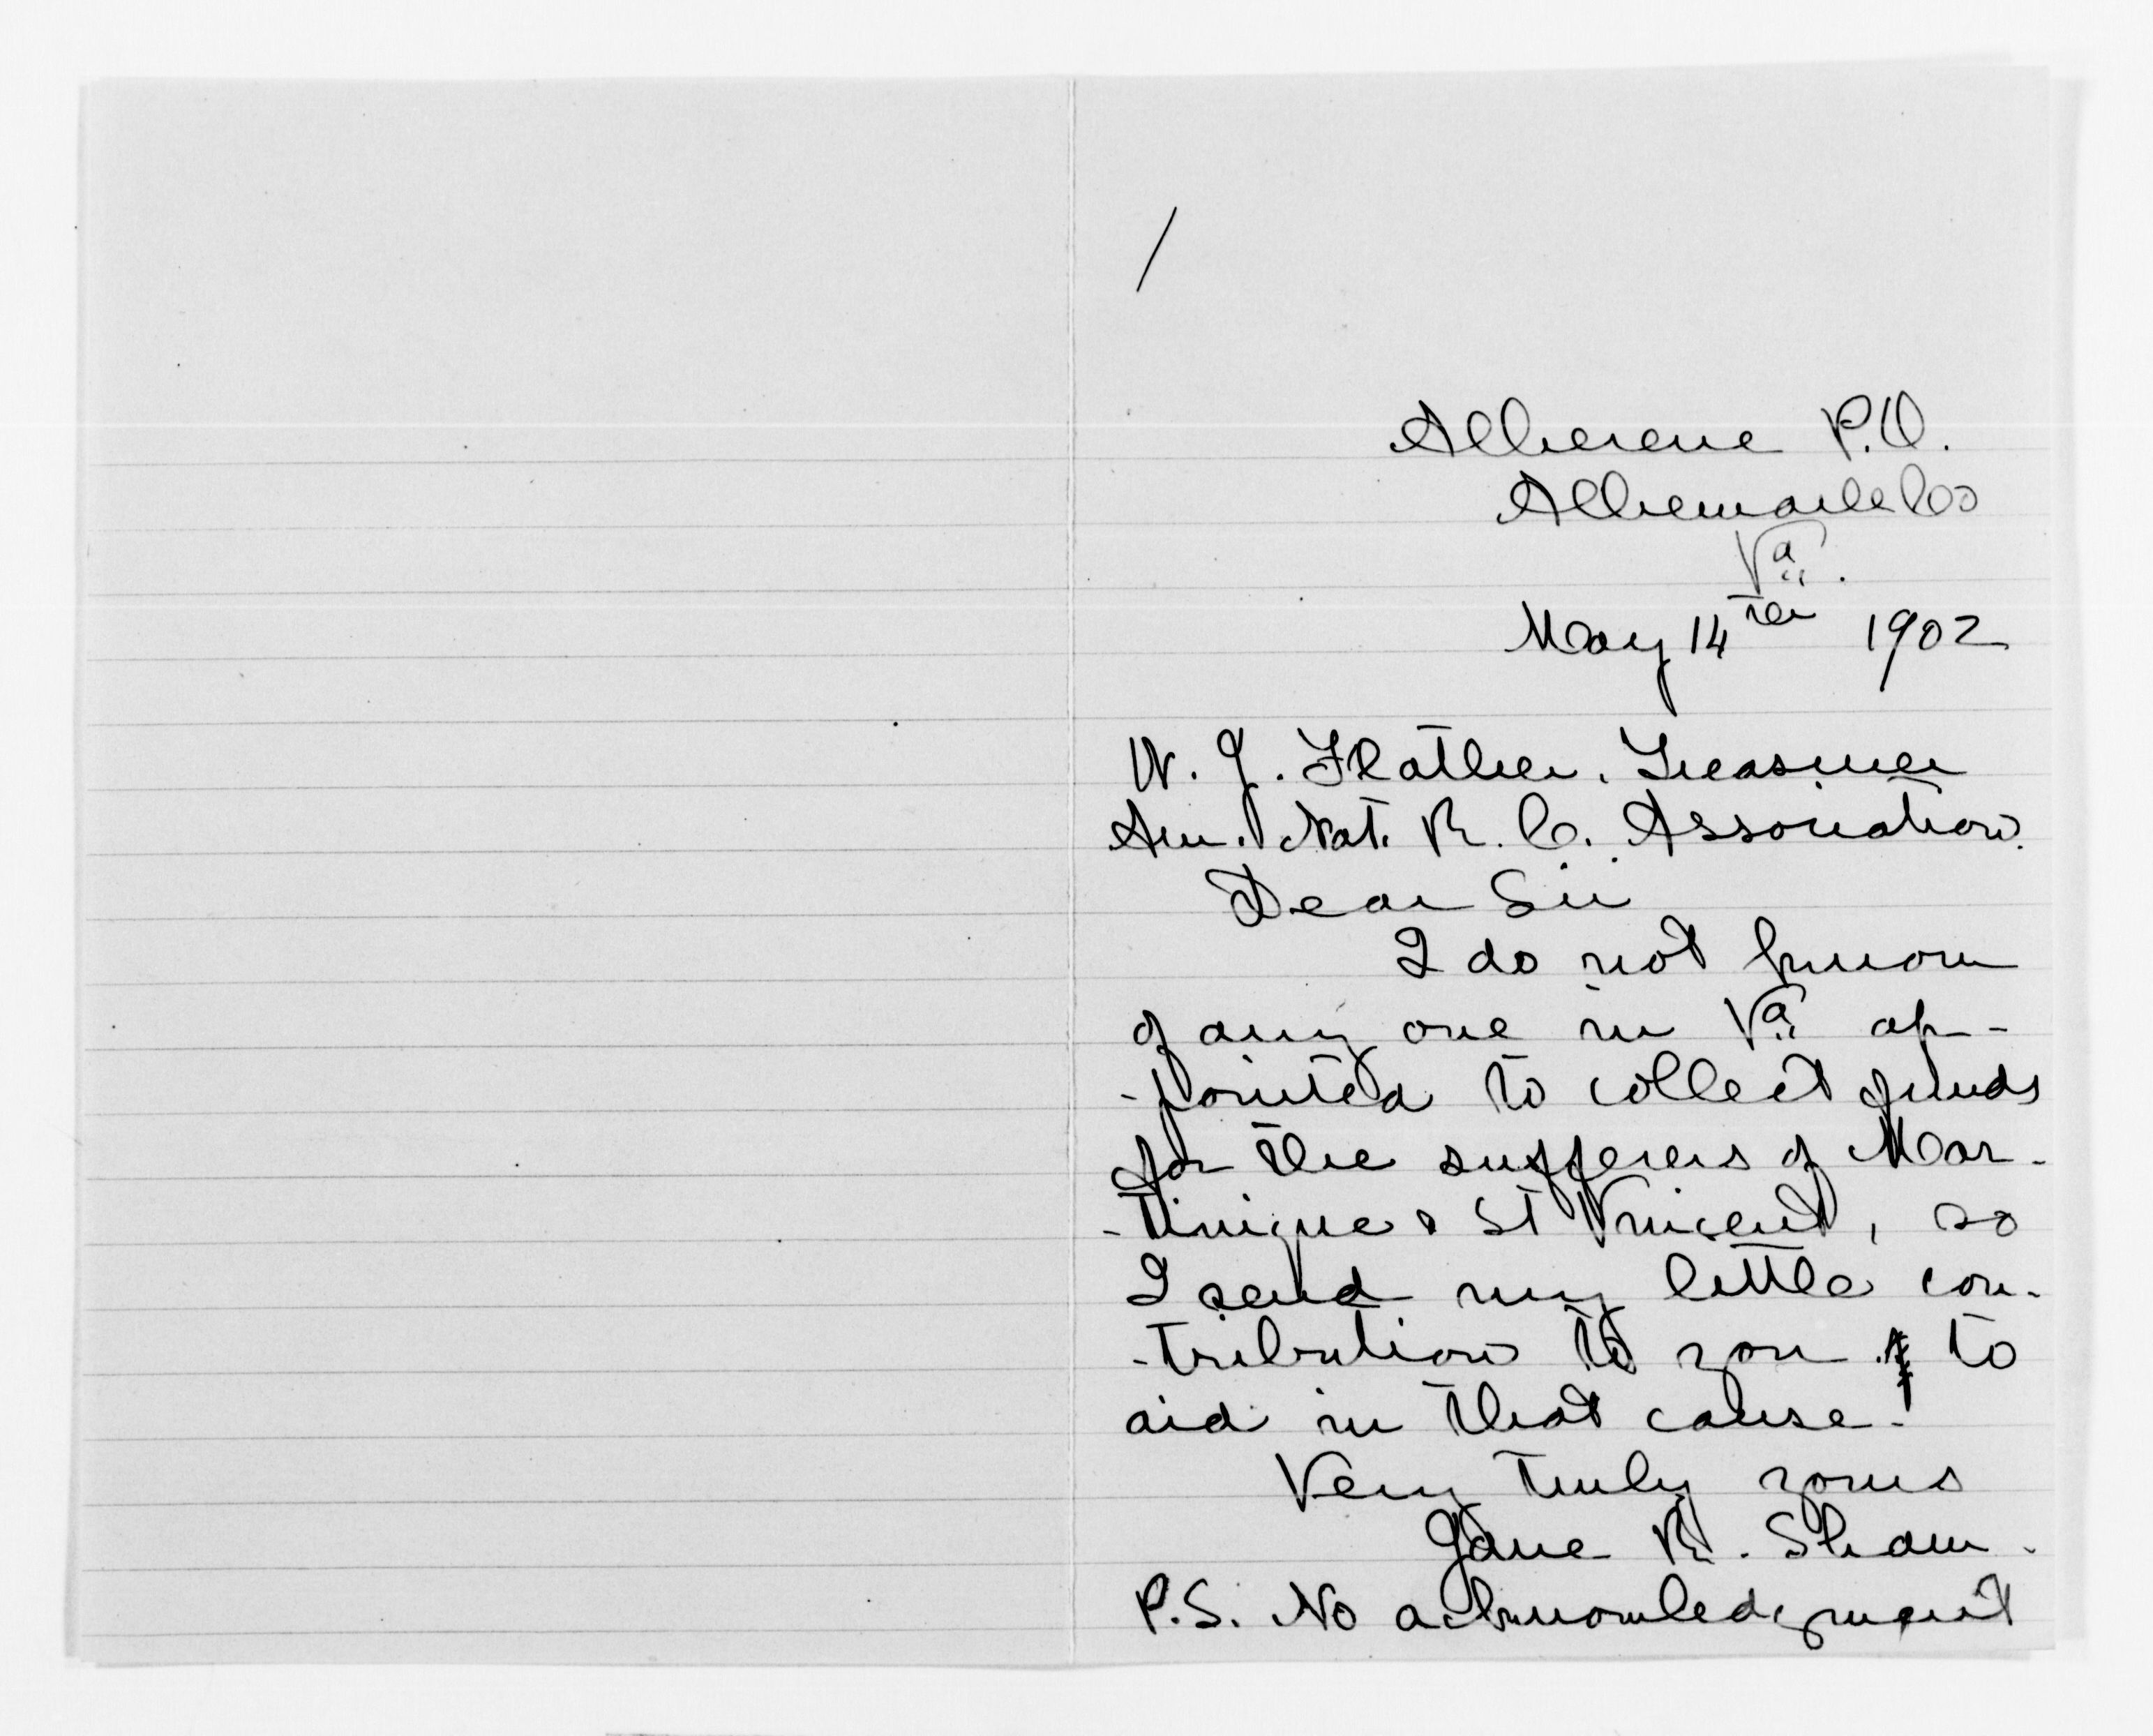 /
Alberene P.O.
Albemarle Co
Va.
May 14th 1902
W. J. Flather. Treasurer
Am. Nat. R. C. Association.
Dear Sir
I do not know
of any one in Va. ap-
-pointed to collect funds
for the sufferers of Mar-
-tinique & St Vincent, so
I send my little con-
-tribution to you to
aid in that cause.
Very truly yours
Jane R. Shaw.
P.S. No acknowledgment